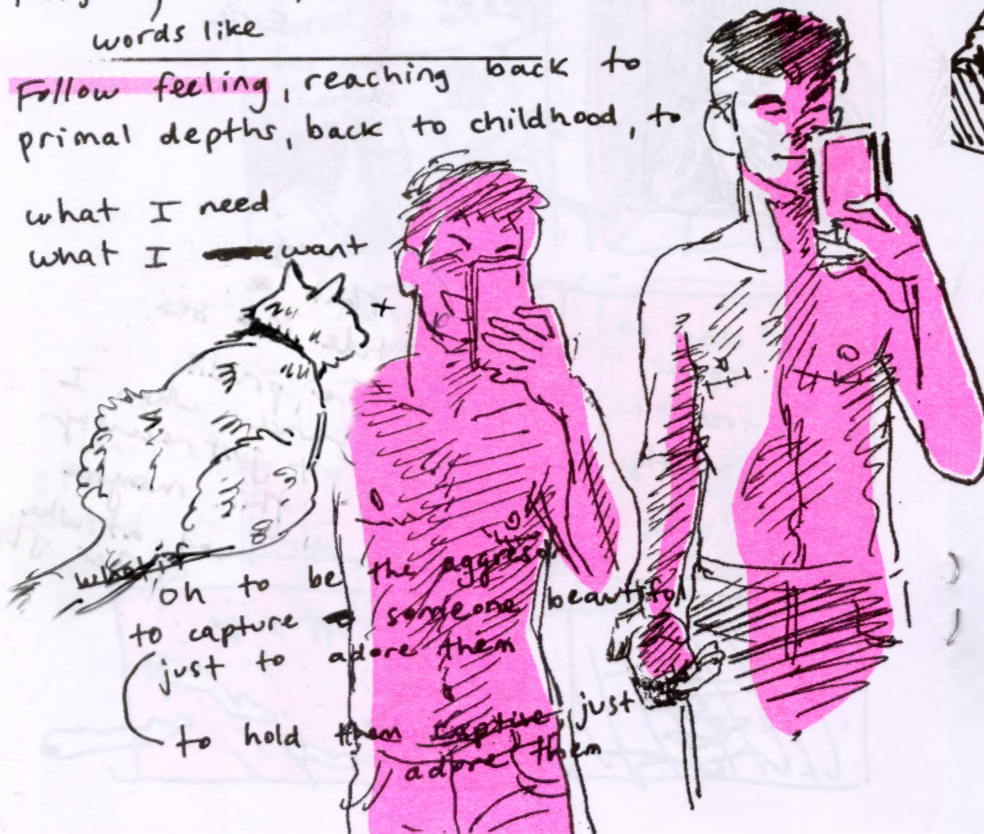 words like
Follow feeling, reaching back to
primal depths, back to childhood, to
what I need
what I want
what if
oh to be the aggressor
to capture someone beautiful
just to adore them
to hold them captive, just
adore them